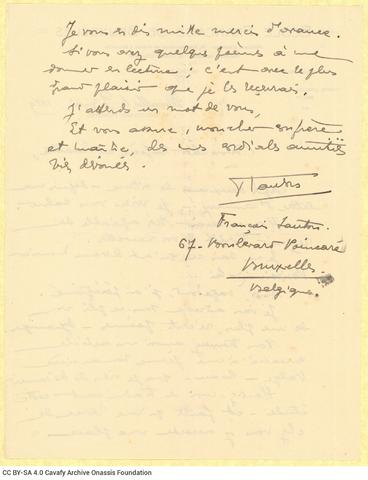 Je vous en dis mille mercis d'avance.
Si vous avez quelques poèmes à me
donner en lecture ; c'est avec le plus
grand plaisir que je les recevrais.
J'attends un mot de vous,
Et vous assure, mon cher confrère
et maître, des mes cordiales amitiés
très dévouées.
François
67 - Boulevard Poincaré
Bruxelles.
Belgique.
CC BY-SA 4.0 Cavafy Archive Onassis Foundation